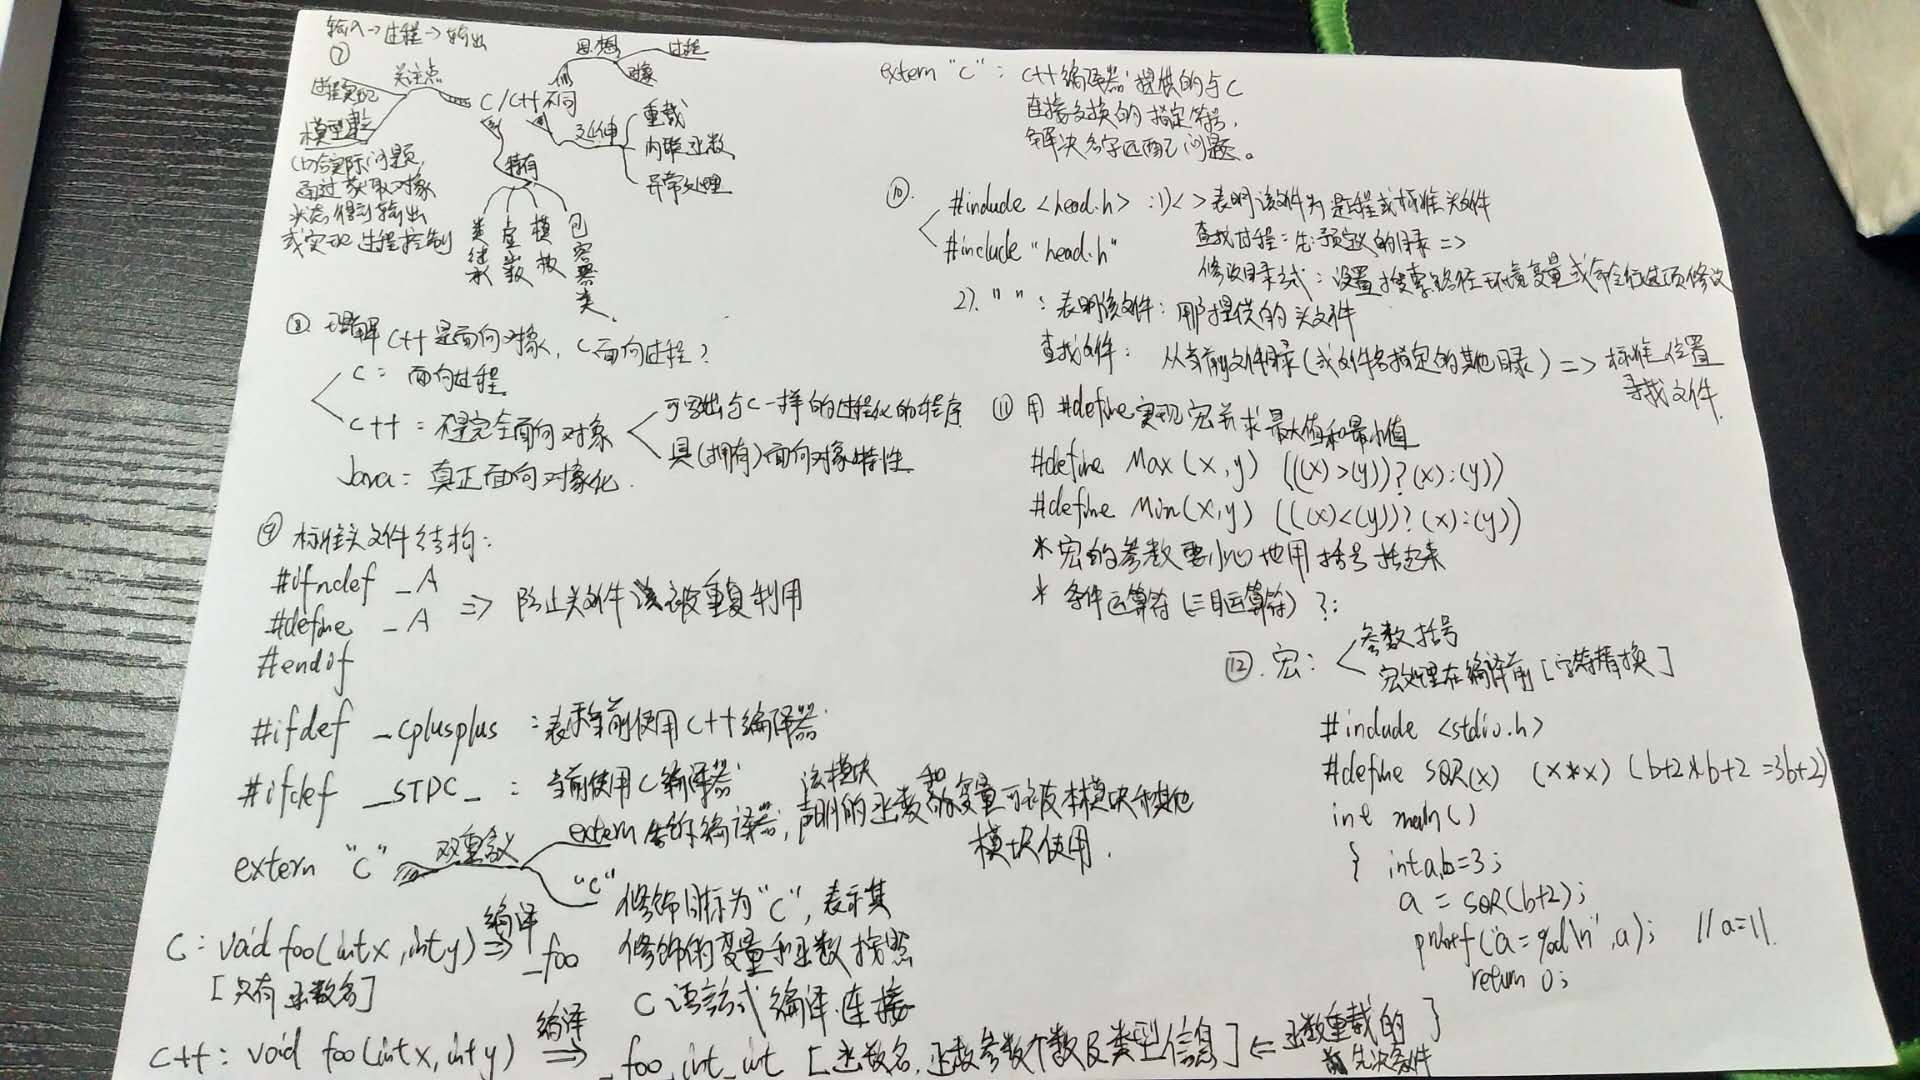 输入→过程→输出
⑦
关注点
过程实现
模型建立
切合实际问题,
通过获取对象
状态得到输出
或实现过程控制
C/C++不同
思想
过程
对象
延伸
重载
内联函数
异常处理
特有
类继承
虚函数
模板
包容器类
⑧. 理解C++是面向对象, C面向过程?
C: 面向过程
C++: 不是完全面向对象
可写出与C一样的过程化的程序
具(拥有)面向对象特性
Java: 真正面向对象化.
⑨ 标准头文件结构:
#ifndef _A
#define _A
#endif
=> 防止头文件该被重复利用
#ifdef _cplusplus :表示当前使用C++编译器
#ifdef _STDC_ : 当前使用C编译器
extern "C"
双重含义
extern 告诉编译器, 该模块声明的函数和变量可被本模块和其他
模块使用.
"C" 修饰目标为"C", 表示其
修饰的变量和函数按照
C语言方式编译.连接
C: void foo(int x, int y) 编译=> _foo
[只有函数名]
C++: void foo(int x, int y) 编译=> _foo_int_int [函数名, 函数参数个数及类型信息] <= 函数重载的
先决条件
extern "C": C++编译器提供的与C
连接交换的指定符号,
解决名字匹配问题。
⑩.
#include <head.h> :1)<>表明该文件为是工程或标准头文件
查找过程: 先预定义的目录=>
修改目录方式: 设置搜索路径环境变量或命令行选项修改
#include "head.h"
2). " ": 表明该文件: 用户提供的头文件
查找文件: 从当前文件目录(或文件名指定的其他目录) => 标准位置
寻找文件.
⑪ 用#define实现宏并求最大值和最小值
#define Max(x,y) (((x)>(y))?(x):(y))
#define Min(x,y) (((x)<(y))?(x):(y))
*宏的参数要小心地用括号括起来
* 条件运算符(三目运算符) ?:
⑫. 宏:
参数括号
宏处理在编译前[字符替换]
#include <stdio.h>
#define SQR(x) (x*x) (b+2*b+2=3b+2)
int main()
{ int a,b=3;
a = SQR(b+2);
printf("a=%d\n",a); //a=11.
return 0;
}